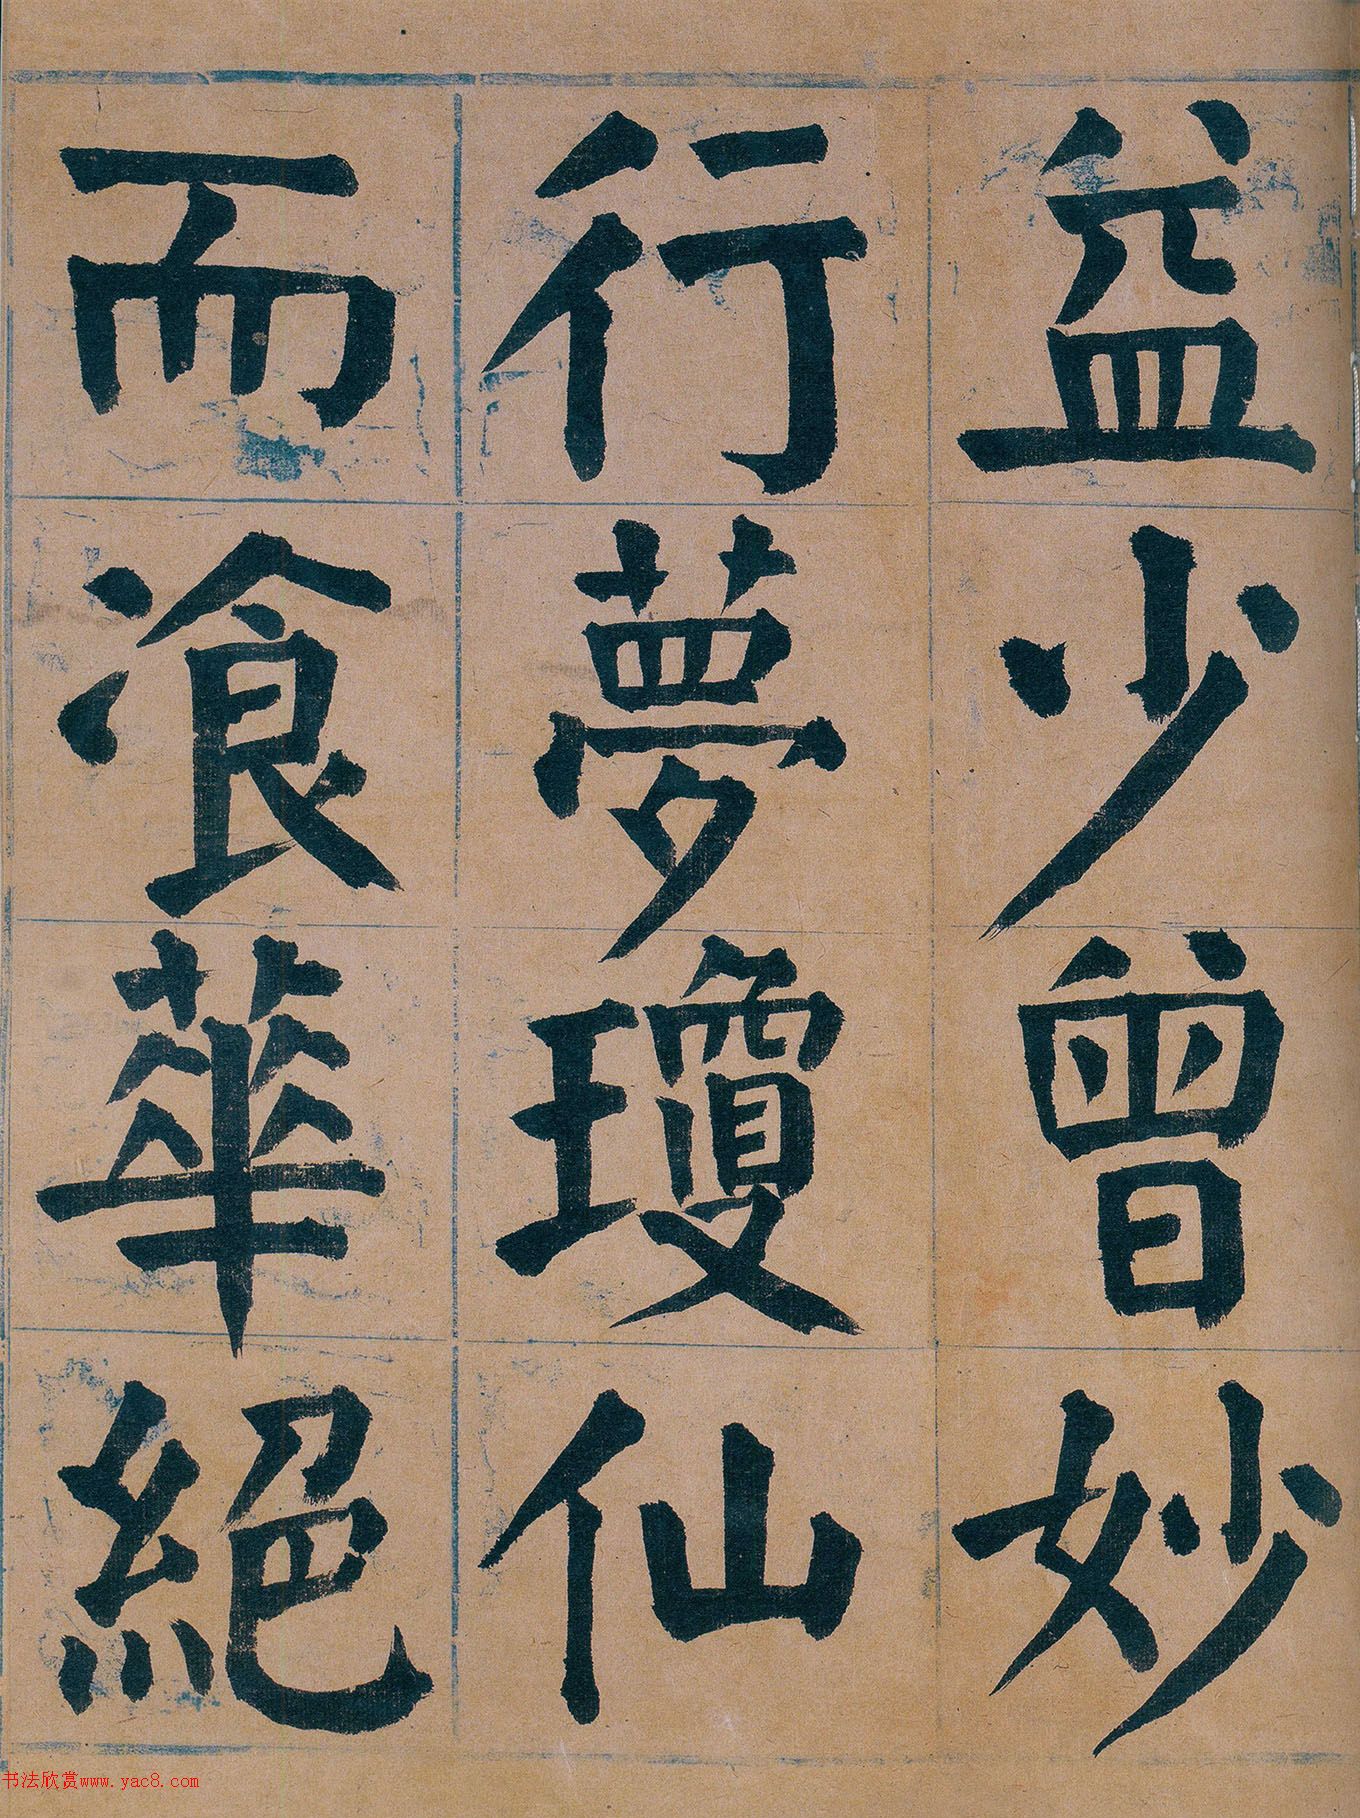 益少曾妙
行夢瓊仙
而飡華絕
书法欣赏www.yac8.com